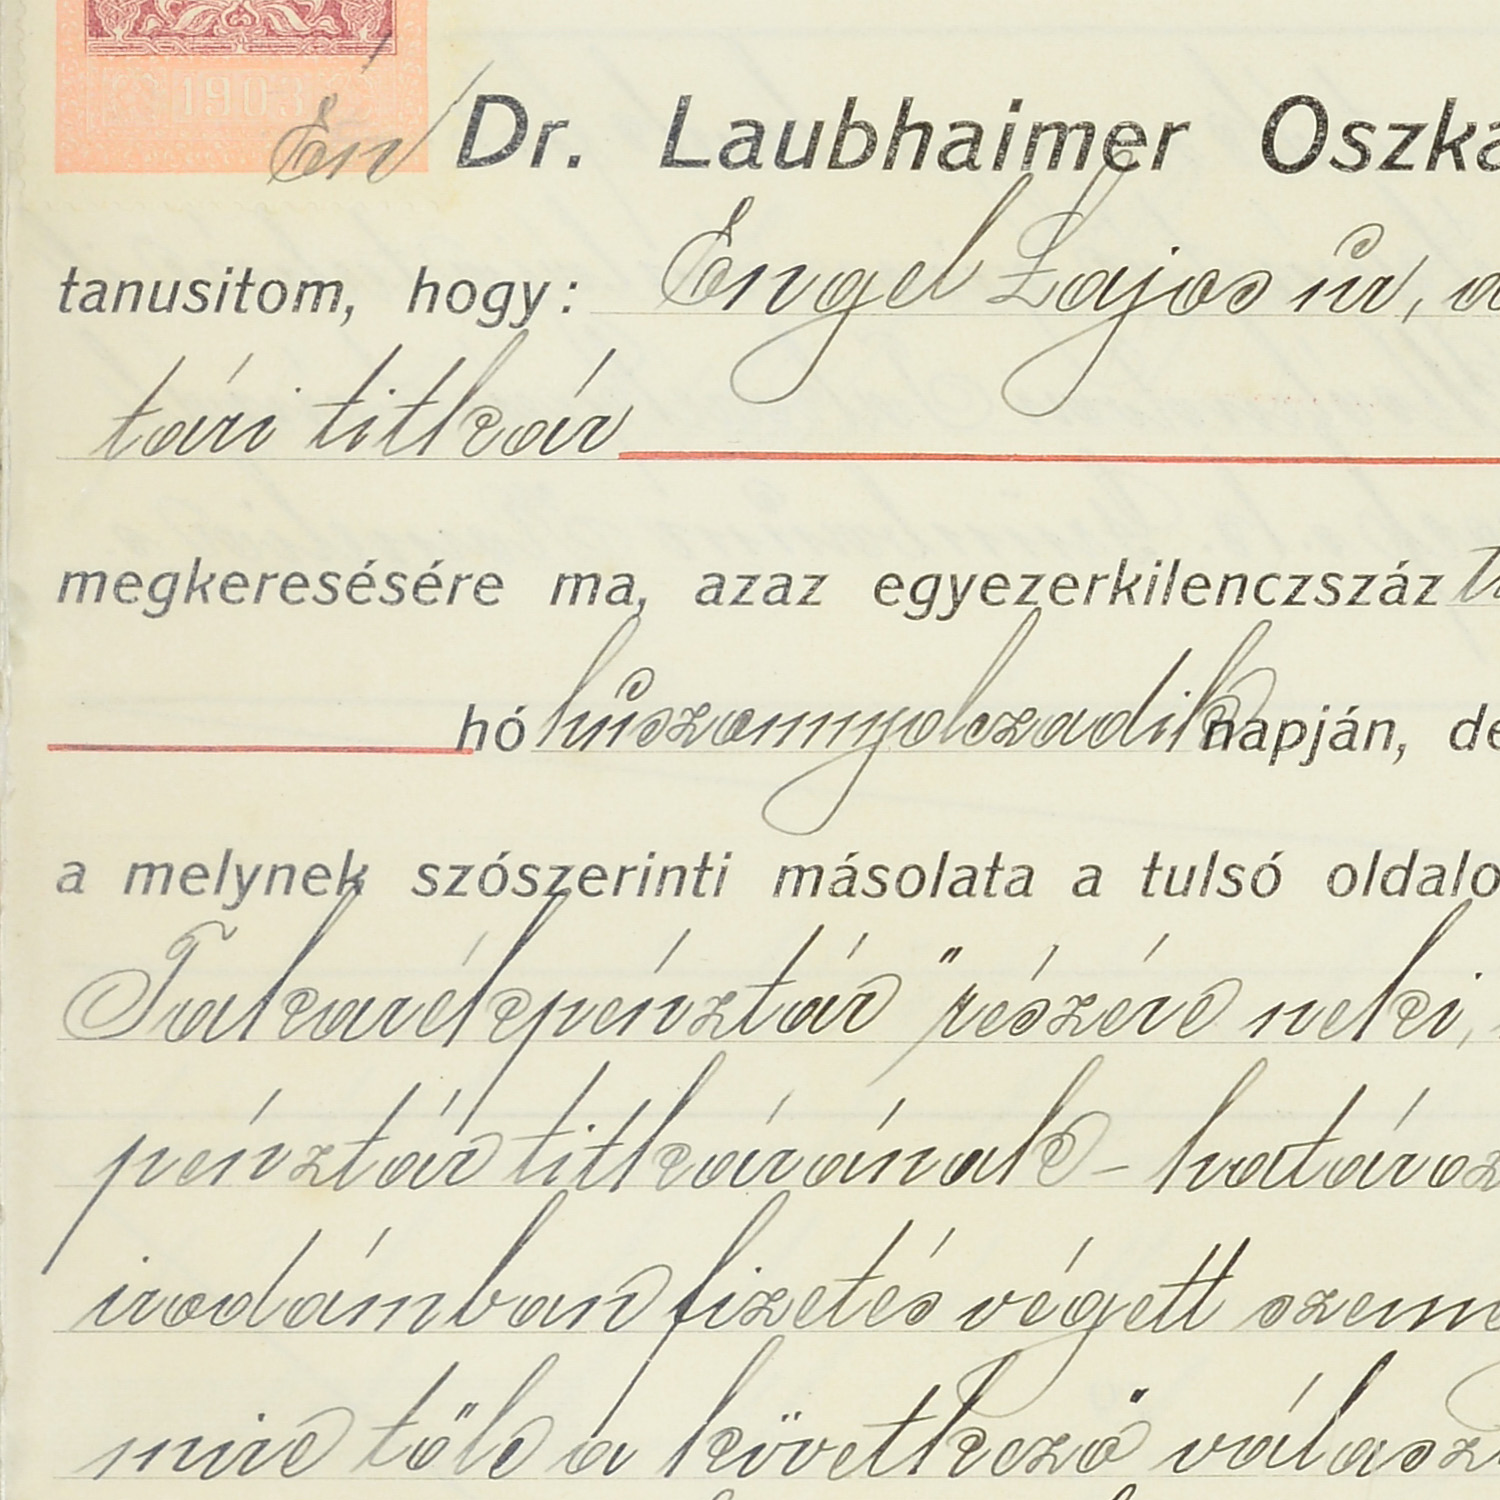 1903
Én Dr. Laubhaimer Oszká
tanusitom, hogy: Engel Lajos úr, a
tári titkár
megkeresésére ma, azaz egyezerkilenczszáz
hó húszonnyolczadik napján, de
a melynek szószerinti másolata a tulsó oldalo
Takarékpénztár" részére neki,
pénztár titkárának - határoz
irodámban fizetés végett szemé
mire tőle a következő válasz